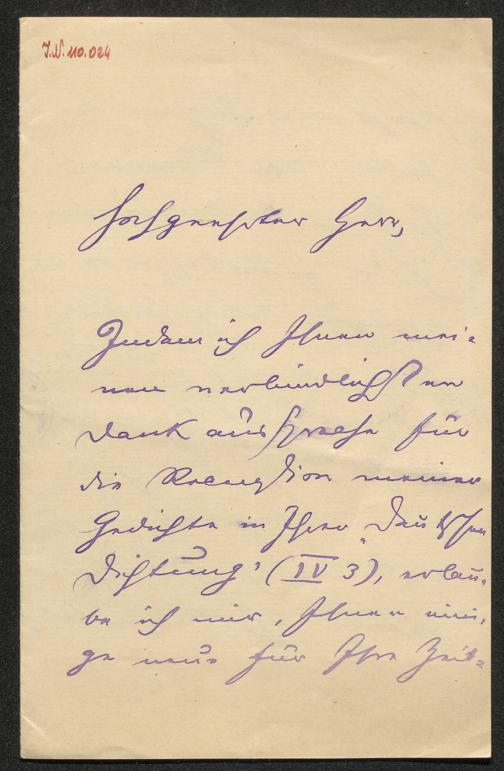 J.N. 110.024
Hochgeehrter Herr,
Indem ich Ihnen mei-
nen verbindlichsten
Dank ausspreche für
die Reception meiner
Gedichte in Ihrer „Deutschen
Dichtung“ (IV 3), erlau-
be ich mir, Ihnen eini-
ge neue für Ihre Zeit-